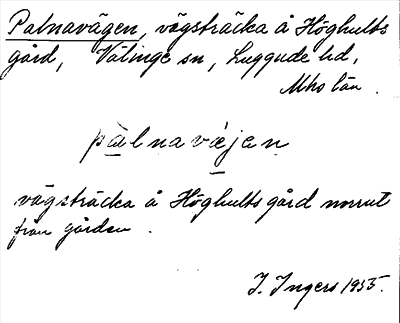 Palnavägen, vägsträcka å Höghults
gård, Välinge sn, Luggude hd,
Mhs län.
pàlnavæjen
vägsträcka å Höghults gård norrut
från gården.
I. Ingers 1935.